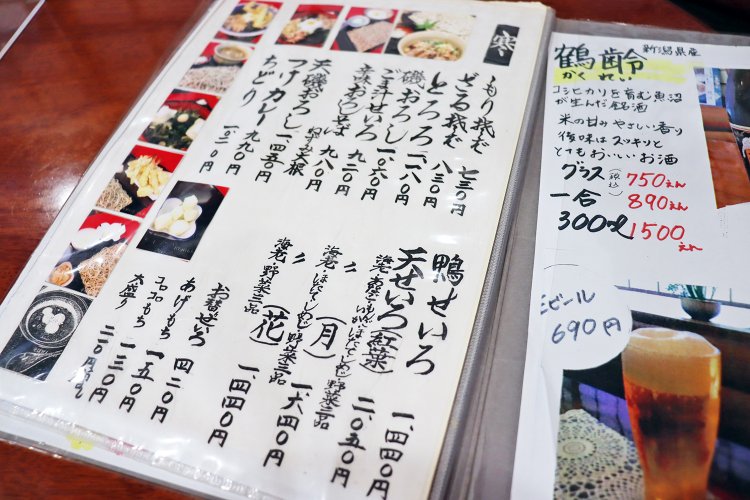 寒
もり蕎麦 七三〇円
ざる蕎麦 八三〇円
とろろ
磯おろし 一、〇六〇円
九二〇円
九八〇円
磯おろし
つけカレー 九九〇円
ちどり 一、〇二〇円
鴨せいろ 一、四四〇円
天せいろ(紅葉) 二、〇五〇円
〃(月) 一、六四〇円
〃(花) 一、四四〇円
海老・野菜三品
お替せいろ 四二〇円
あげもち 一五〇円
コロコロもち 一三〇円
大盛り 二二〇円
鶴齢 新潟県産
かくれい
コシヒカリを育む魚沼
が生んだ銘酒
米の甘みやさしい香り
後味はスッキリと
とてもおいしいお酒
グラス(税込) 750えん
一合 890えん
300ml 1500えん
ビール
690円